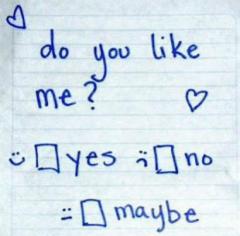 do you like
me?
yes no
maybe